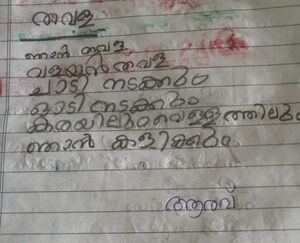 തവള
ഞാൻ തവള
വളയൻ തവള
ചാടി നടക്കും
ഓടി നടക്കും
കരയിലും വെള്ളത്തിലും
ഞാൻ കളിക്കും
ആരവ്